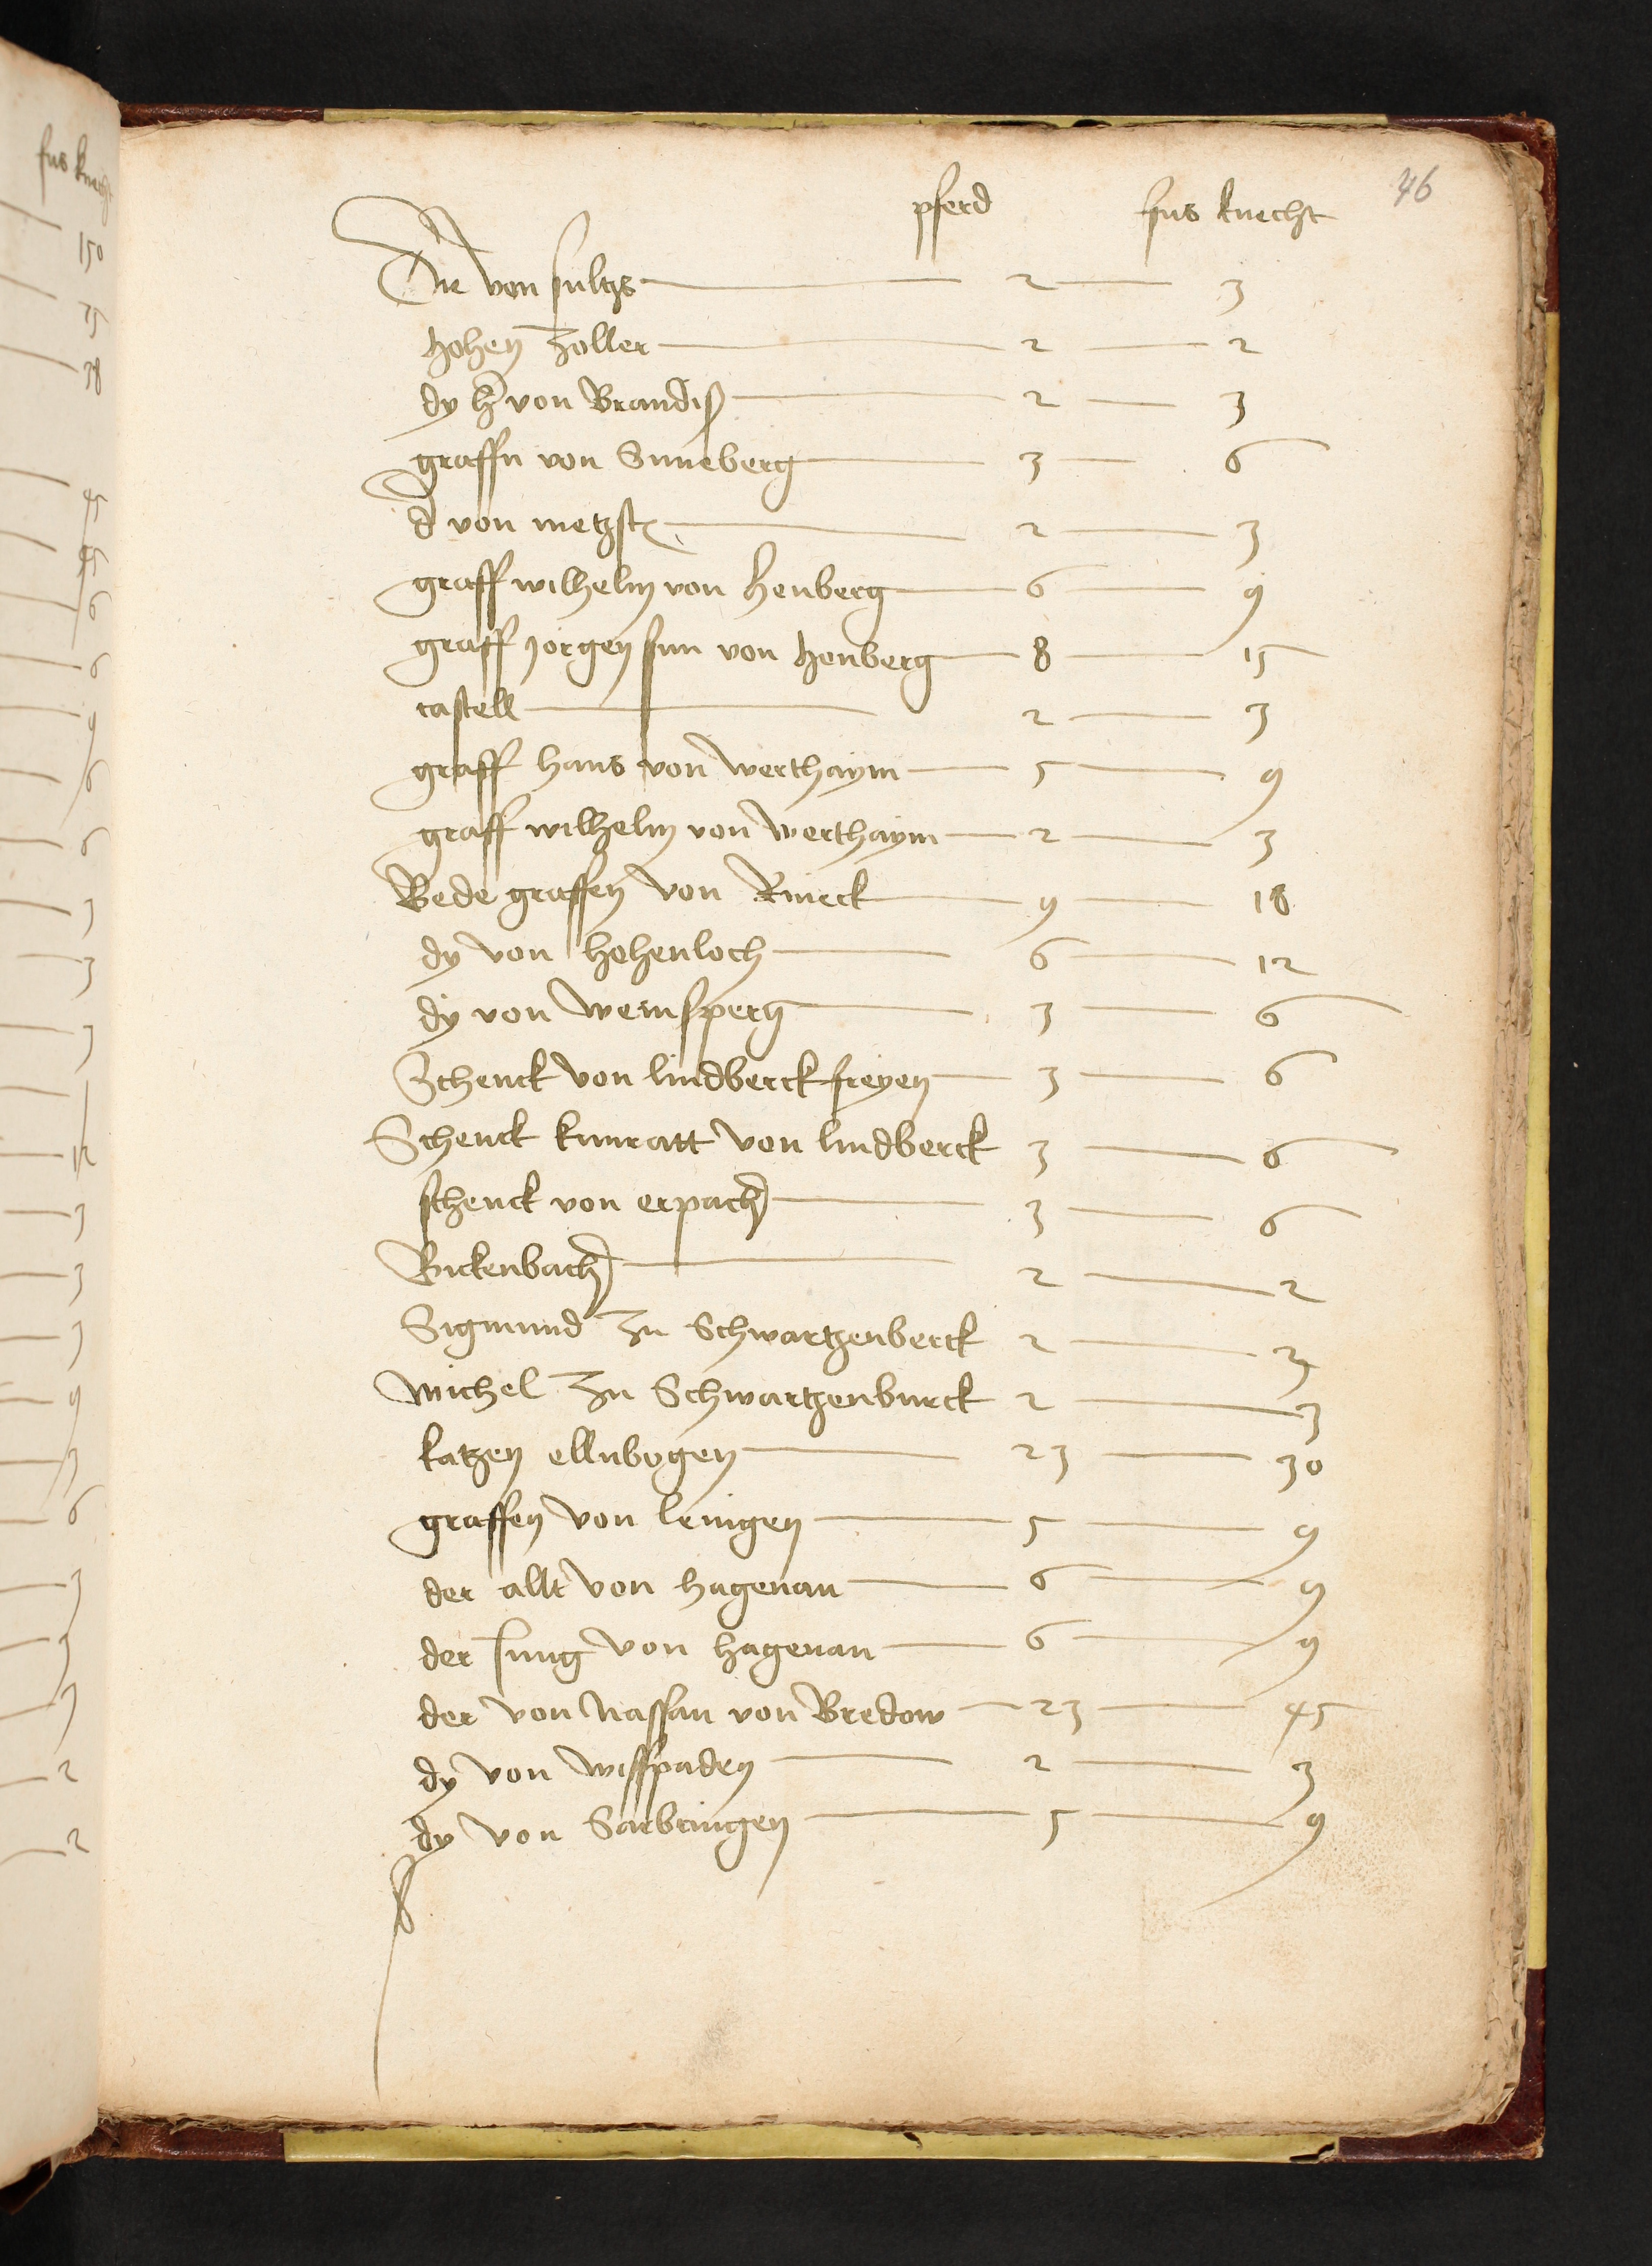 46
pferd fus knecht
Die von sultzs 2 3
hohen zoller 2 2
dy h von Brandiß 2 3
graffn von Suneberg 3 6
d von metzsch 2 3
graff wilhelm von henberg 6 9
graff jorgen sun von henberg 8 15
castell 2 3
graff hans von werthaym 5 9
graff wilhelm von werthaym 2 3
Bede graffen von Rineck 9 18
dy von hohenloch 6 12
dy von weinsperg 3 6
Schenck von lindberck freyen 3 6
Schenck kunratt von lindberck 3 6
schenck von erpach 3 6
Bickenbach 2 2
Sigmund zu Schwartzenberck 2 3
michel zu Schwartzenburck 2 3
katzen ellnbogen 23 30
graffen von leingen 5 9
der allt von hagenau 6 9
der Jung von hagenau 6 9
der von nassau von Bredow 23 45
dy von wisspaden 2 3
dy von Sarbringen 5 9
fus knecht
150
75
38
45
45
6
6
9
6
6
3
3
3
12
3
3
3
9
3
6
3
3
3
2
2